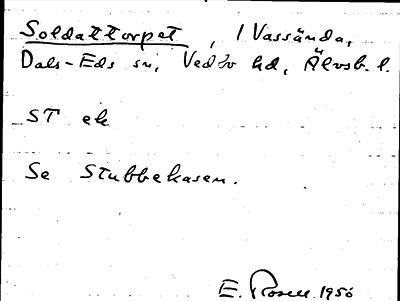 Soldattorpet, / Vassända,
Dals-Eds sn, Vedbo hd, Älvsb. l.
ST ek
Se Stubbekasen.
E. Rosell 1950